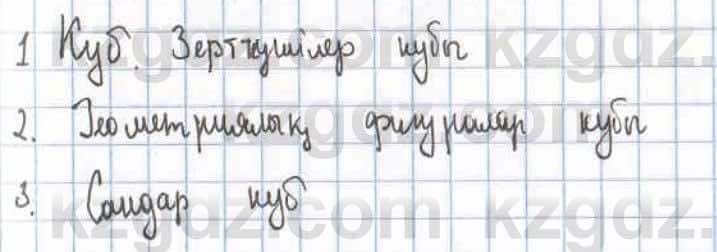 1 Куб. Зерттушілер кубы
2. Геометриялық фигуралар кубы
3. Сандар куб
kzgdz.com kzgdz.com